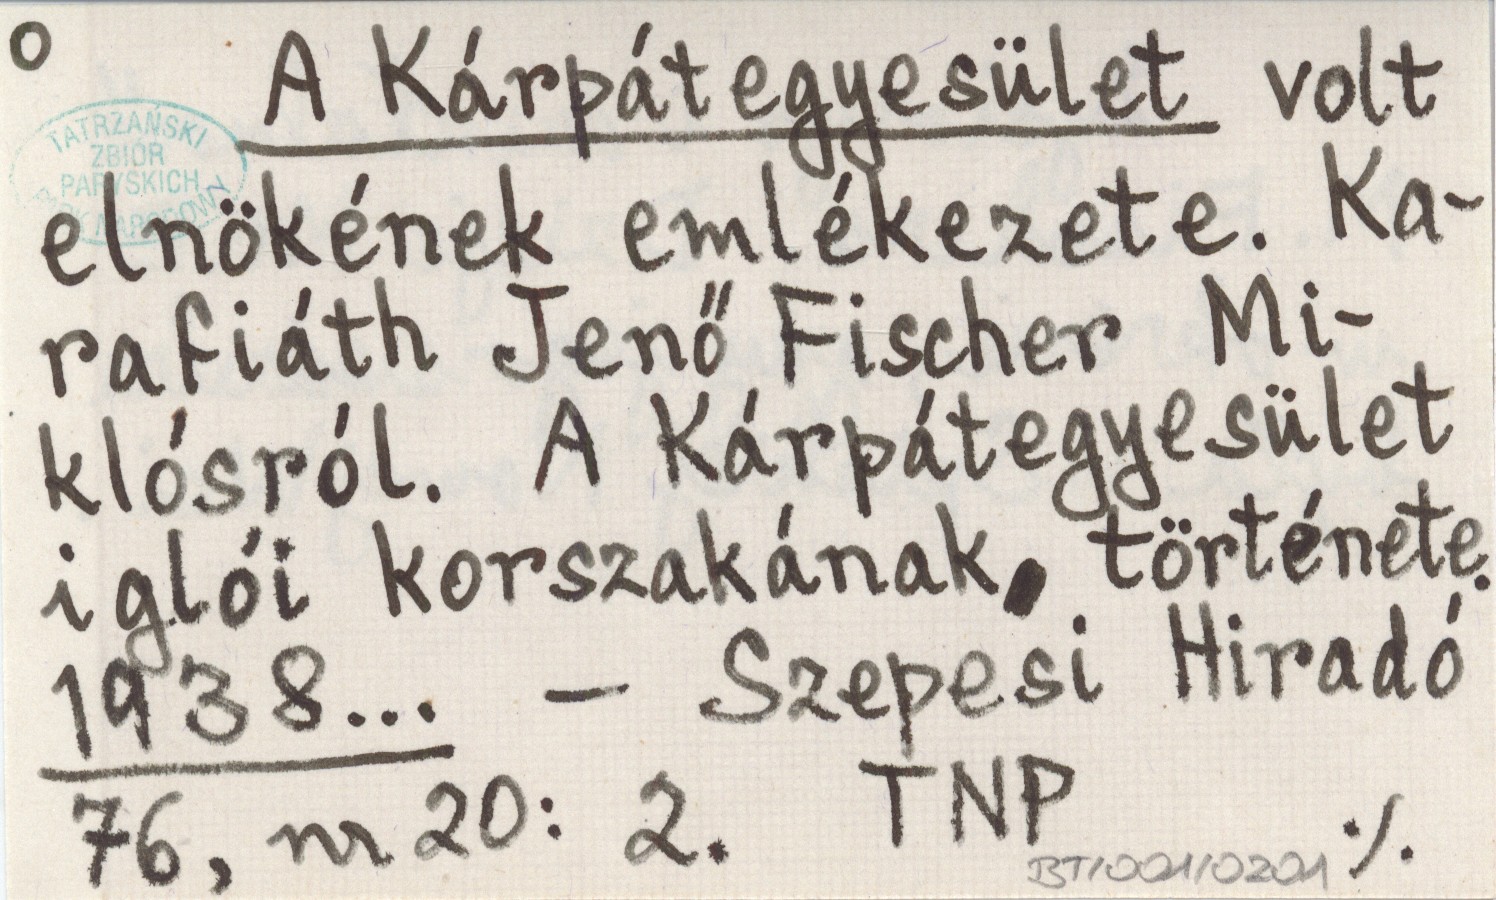 O A Kárpátegyesület volt
TATRZAŃSKI
ZBIÓR
PARYSKICH
PARK NARODOWY
elnökének emlékezete. Ka-
rafiáth Jenő Fischer Mi-
klósról. A Kárpátegyesület
iglói korszakának, története.
1938... – Szepesi Hiradó
76, nr 20: 2. TNP ./.
BT/001/0201